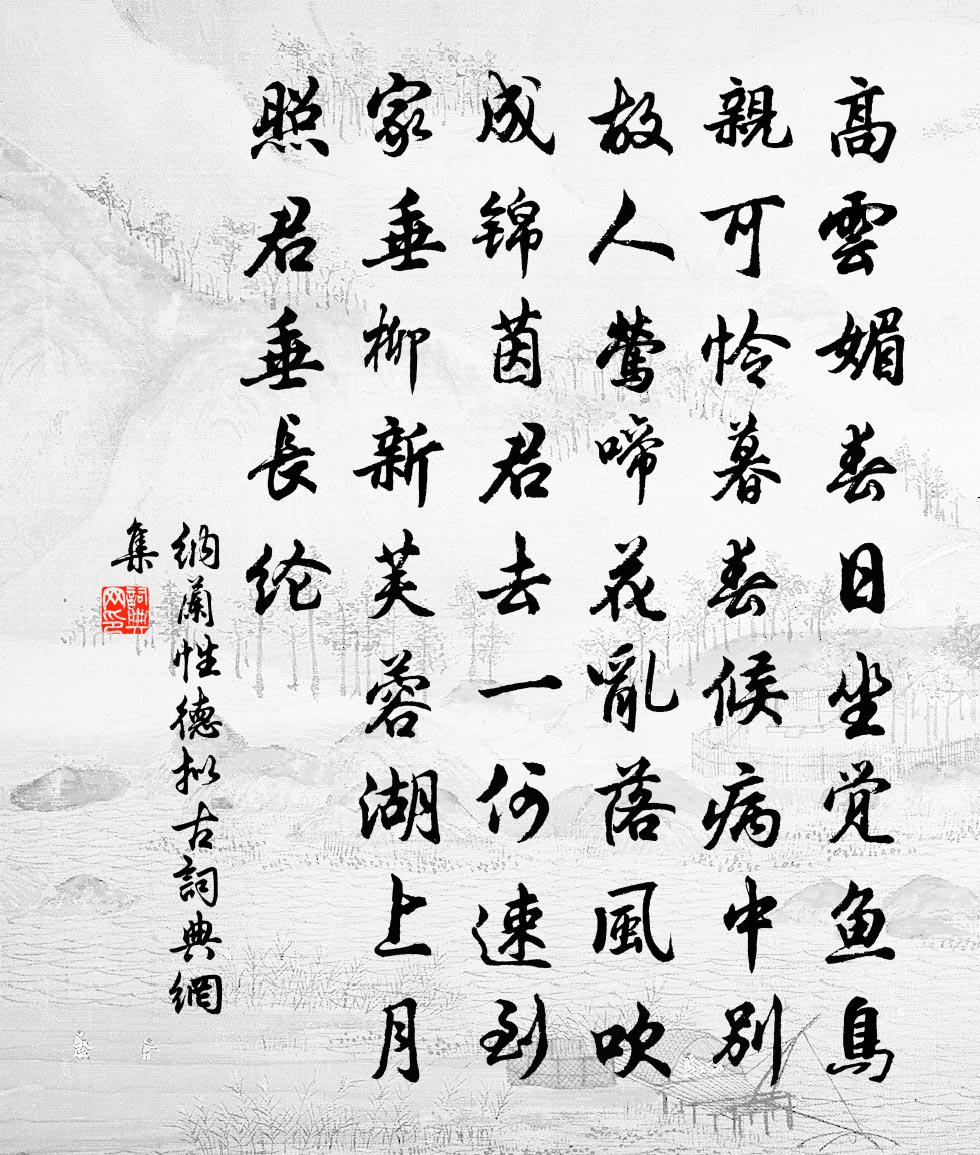 高雲媚春日坐觉鱼鳥
親可怜暮春候病中别
故人鶯啼花亂落風吹
成锦茵君去一何速到
家垂柳新芙蓉湖上月
照君垂長纶
納蘭性德拟古詞典網
集
詞典
网印